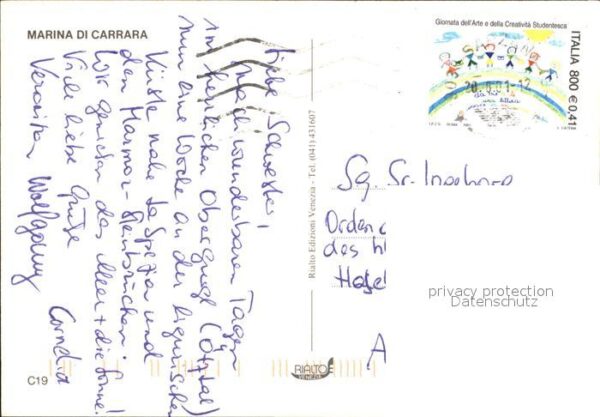 MARINA DI CARRARA
Liebe Schwester!
Nach wunderbaren Tagen
im herrlichen Obergurgl (Ötztal)
nun eine Woche an der ligurischen
Küste nahe La Spezia und
den Marmor-Steinbrüchen.
Wir genießen das Meer + die Sonne!
Viele liebe Grüße
Wolfgang
C19
Rialto Edizioni Venezia - Tel. (041) 431607
RIALTO
VENEZIA
Giornata dell'Arte e della Creatività Studentesca
ITALIA 800 € 0,41
Sg. Sr. Ingeborg
Orden
des
privacy protection
Datenschutz
A